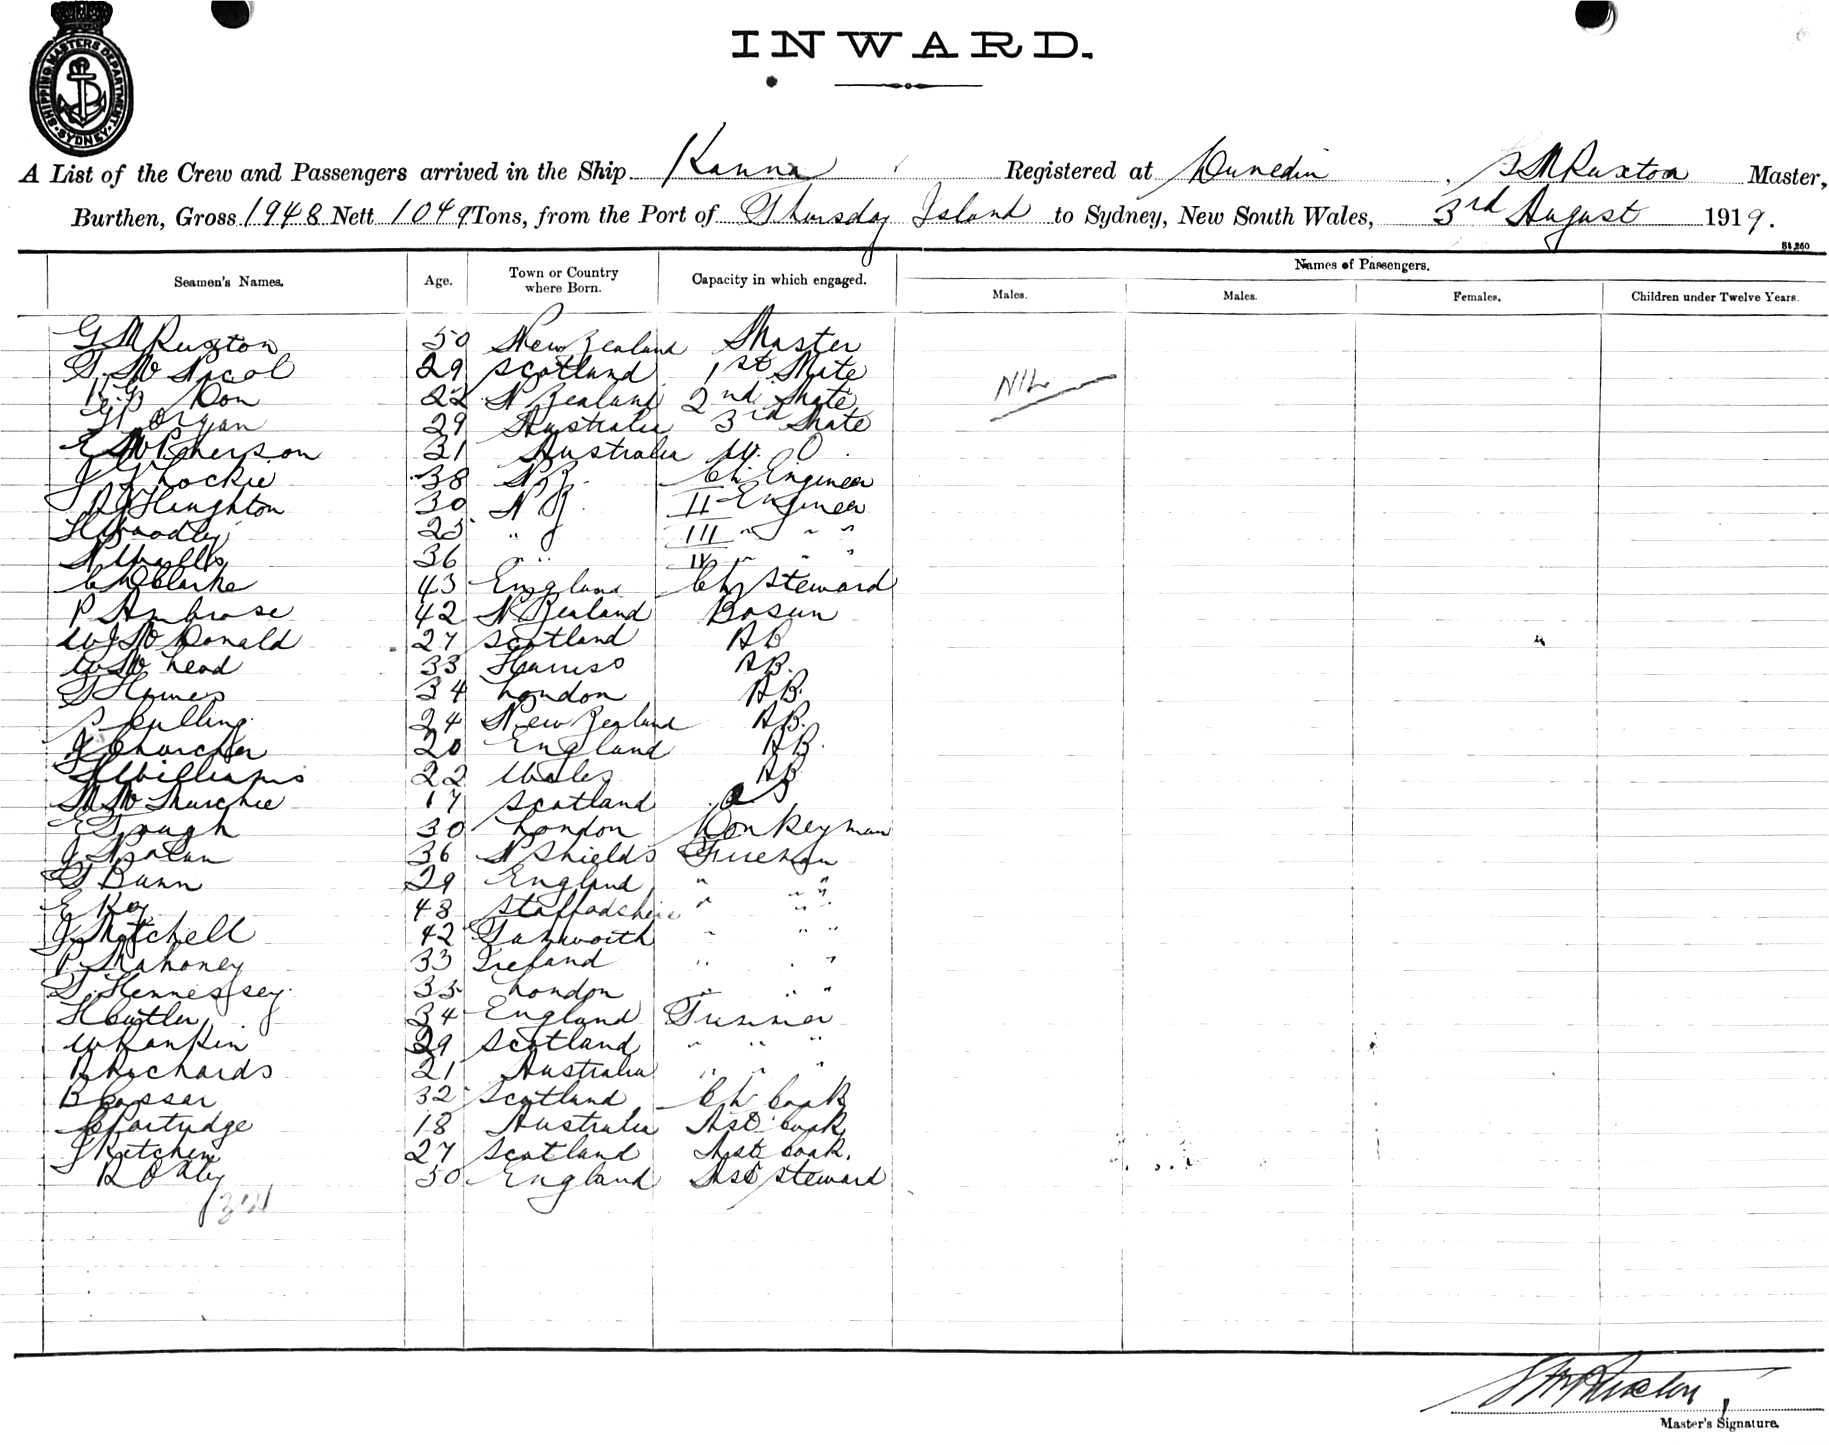 INWARD.
SHIPPING MASTERS DEPARTMENT SYDNEY
A List of the Crew and Passengers arrived in the Ship Kanna Registered at Dunedin G M Ruxton Master,
Burthen, Gross 1948 Nett 1049 Tons, from the Port of Thursday Island to Sydney, New South Wales, 3rd August 1919.
Seamen's Names. Age. Town or Country where Born. Capacity in which engaged. Names of Passengers.
Males. Males. Females. Children under Twelve Years.
G M Ruxton 50 New Zealand Master
Mc Nicol 29 Scotland 1st Mate
Don 22 N Zealand 2nd Mate
Organ 29 Australia 3rd Mate
E McPherson 21 Australia W. O
J Lockie 38 N Z. Ch. Engineer
Heughton 30 N Z. II Engineer
25 " III " " "
36 " " IV " " "
C Clarke 43 England Ch Steward
P Ambrose 42 N Zealand Bosun
W J McDonald 27 Scotland AB
W McLeod 33 Harris AB.
Himes 34 London AB.
24 New Zealand AB.
J Churcher 20 England AB.
Williams 22 Wales AB
M McMurchie 17 Scotland OS
E Gough 30 London Donkeyman
J 36 N Shields Fireman
Bunn 29 England " "
E 48 Staffordshire " "
J Mitchell 42 Tamworth " " "
P Mahoney 33 Ireland " . "
T. Hennessey. 35 London " " "
H Cutler 34 England Trimmer
W Rankin 29 Scotland " " "
R Richards 21 Australia " " "
B 32 Scotland Ch Cook
Partridge 18 Australia Asst Cook
J Kitchen 27 Scotland Asst Cook.
R Oxley 50 England Asst Steward
NIL
G M Ruxton
Master's Signature.